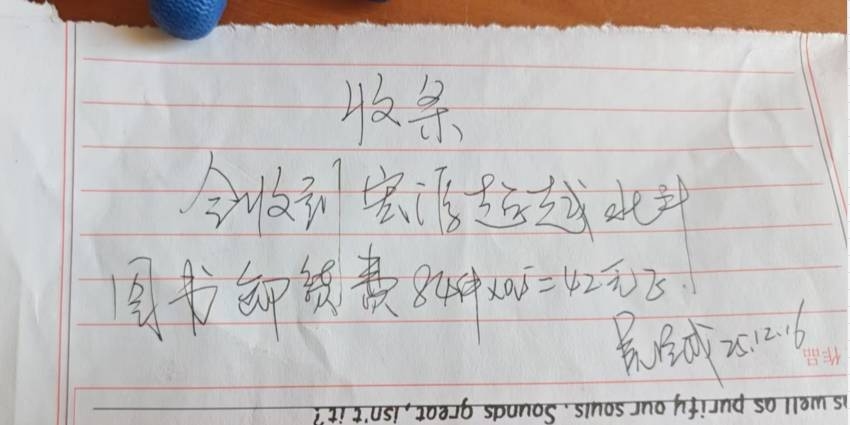 收条
今收到宏源超越北斗
图书卸货费84件×0.5=42元正.
25.12.16
作品
as well as purify our souls. Sounds great, isn't it?